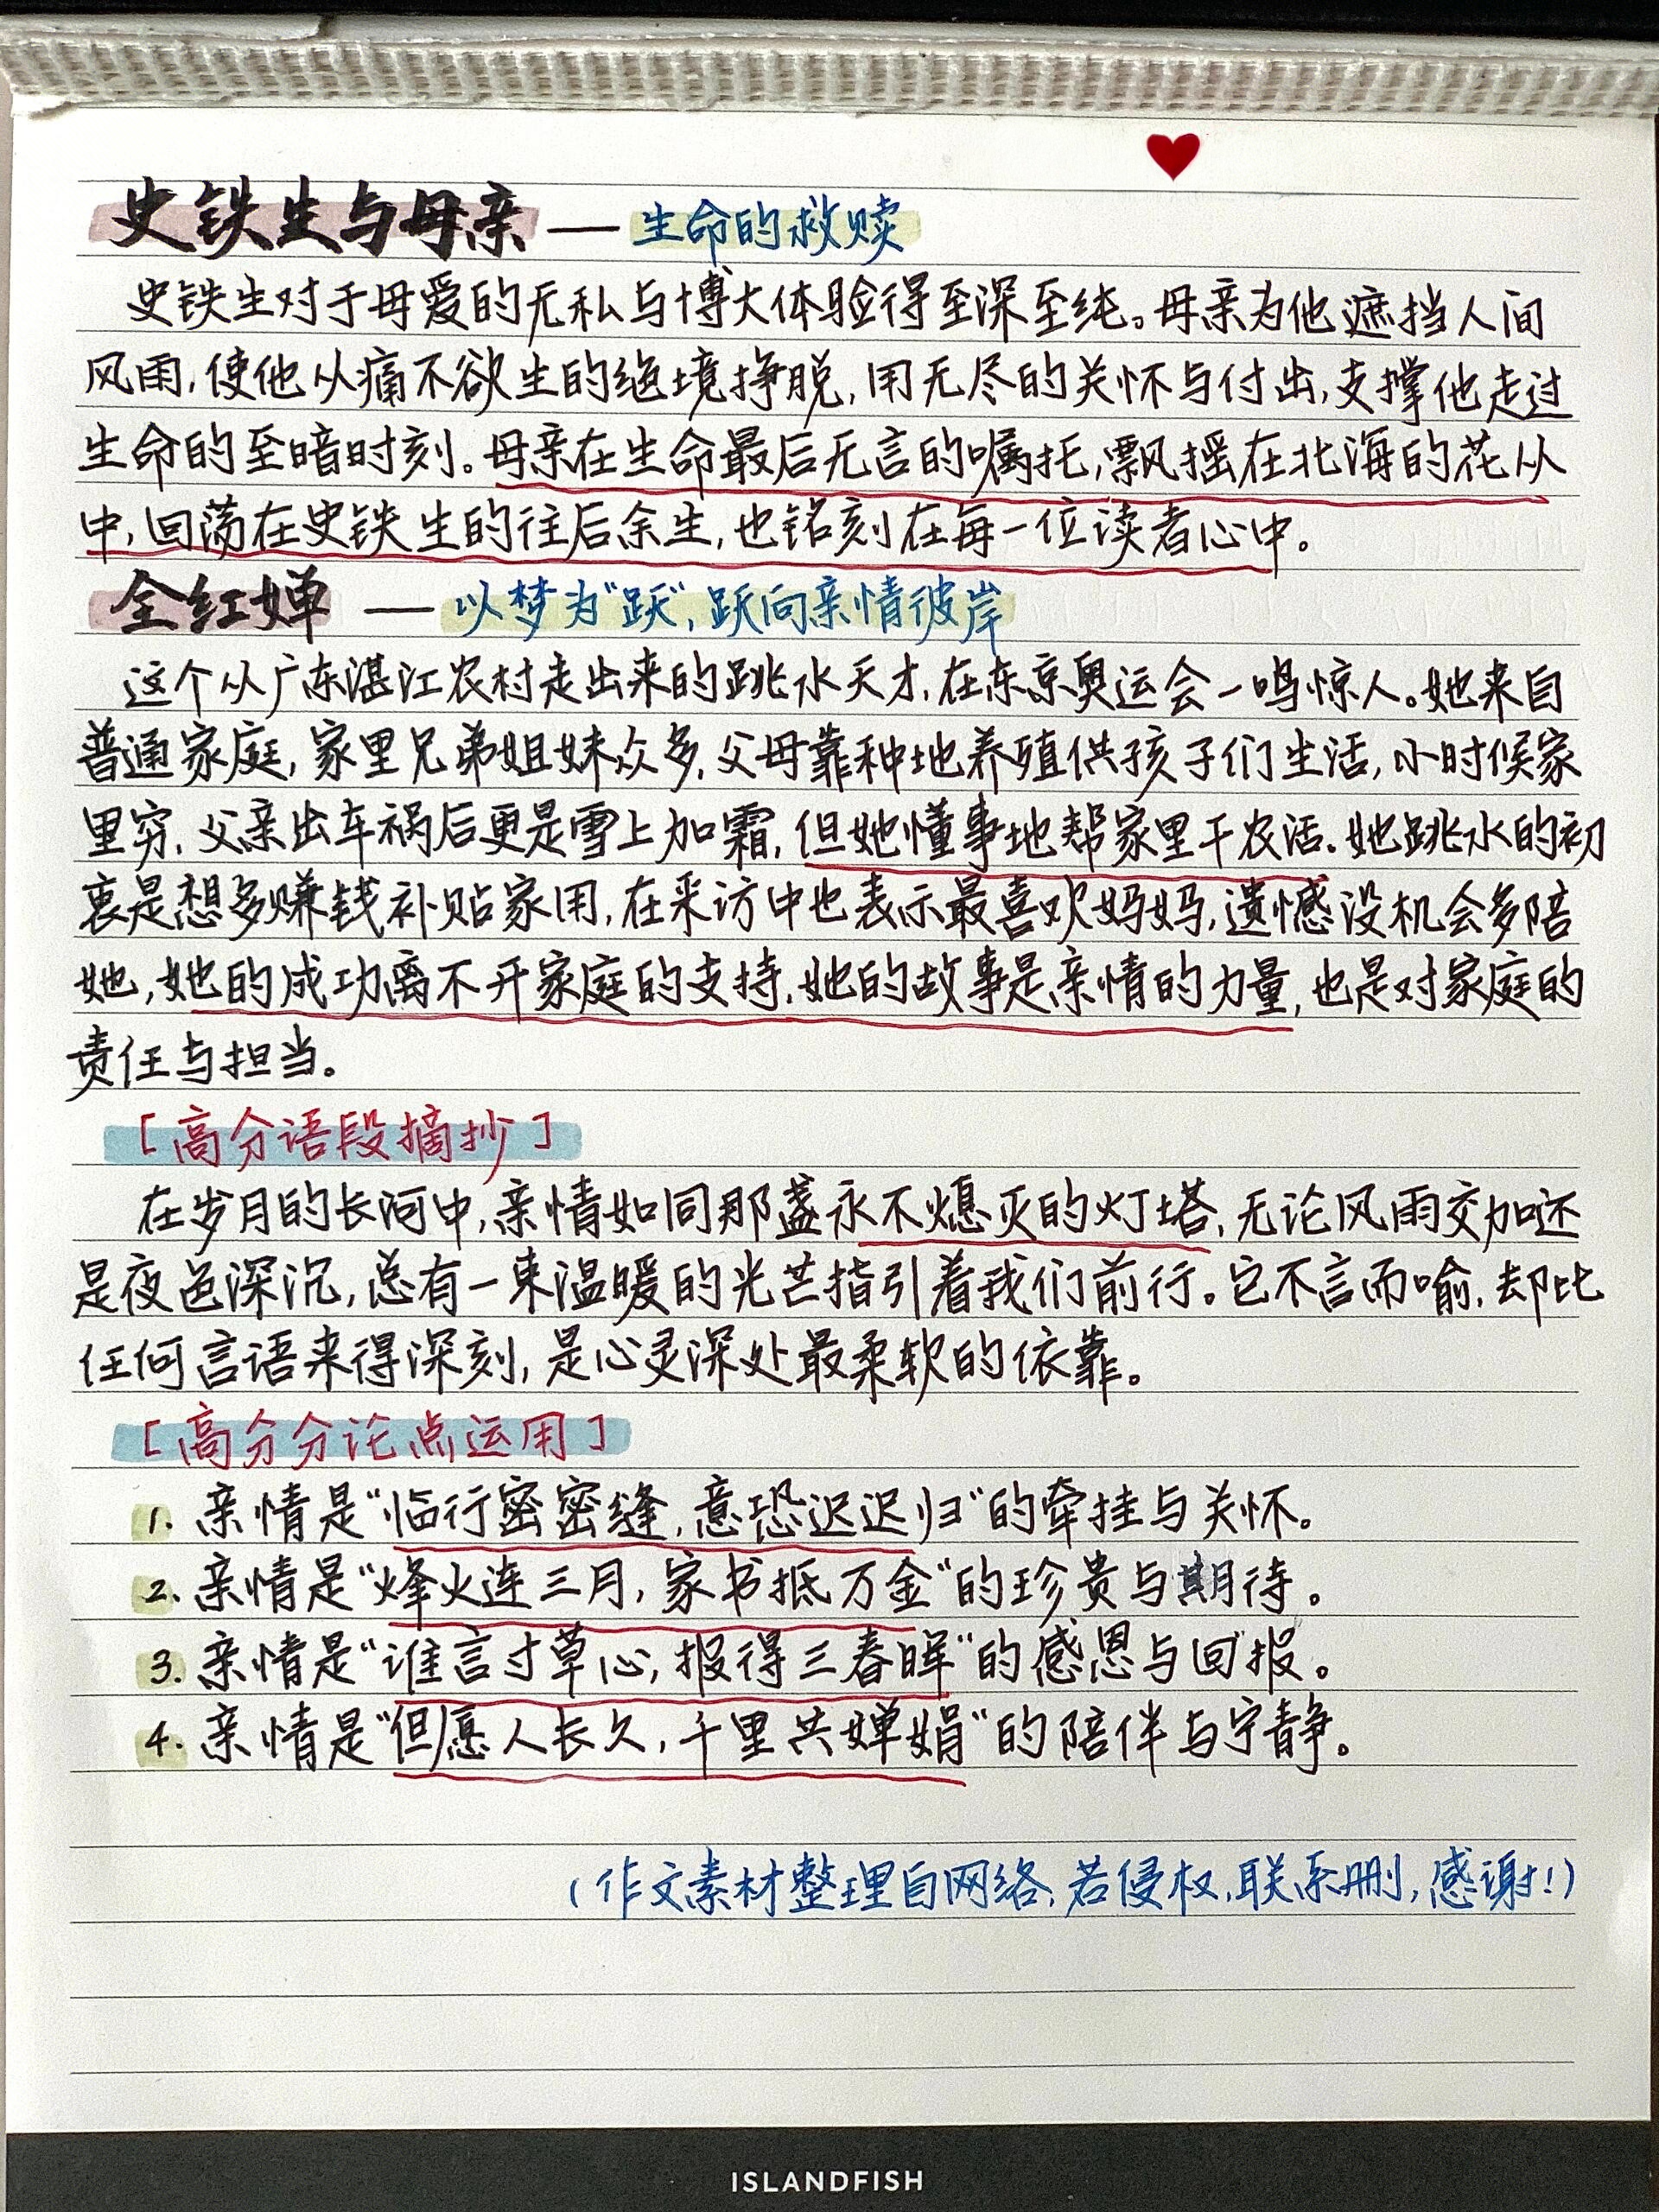 史铁生与母亲 — 生命的救赎
史铁生对于母爱的无私与博大体验得至深至纯。母亲为他遮挡人间
风雨,使他从痛不欲生的绝境挣脱,用无尽的关怀与付出,支撑他走过
生命的至暗时刻。母亲在生命最后无言的嘱托,飘摇在北海的花从
中,回荡在史铁生的往后余生,也铭刻在每一位读者心中。
全红婵 — 以梦为"跃",跃向亲情彼岸
这个从广东湛江农村走出来的跳水天才,在东京奥运会一鸣惊人。她来自
普通家庭,家里兄弟姐妹众多,父母靠种地养殖供孩子们生活,小时候家
里穷,父亲出车祸后更是雪上加霜,但她懂事地帮家里干农活。她跳水的初
衷是想多赚钱补贴家用,在采访中也表示最喜欢妈妈,遗憾没机会多陪
她,她的成功离不开家庭的支持,她的故事是亲情的力量,也是对家庭的
责任与担当。
[高分语段摘抄]
在岁月的长河中,亲情如同那盏永不熄灭的灯塔,无论风雨交加还
是夜色深沉,总有一束温暖的光芒指引着我们前行。它不言而喻,却比
任何言语来得深刻,是心灵深处最柔软的依靠。
[高分分论点运用]
1. 亲情是"临行密密缝,意恐迟迟归"的牵挂与关怀。
2. 亲情是"烽火连三月,家书抵万金"的珍贵与期待。
3. 亲情是"谁言寸草心,报得三春晖"的感恩与回报。
4. 亲情是"但愿人长久,千里共婵娟"的陪伴与宁静。
(作文素材整理自网络,若侵权,联系删,感谢!)
ISLANDFISH